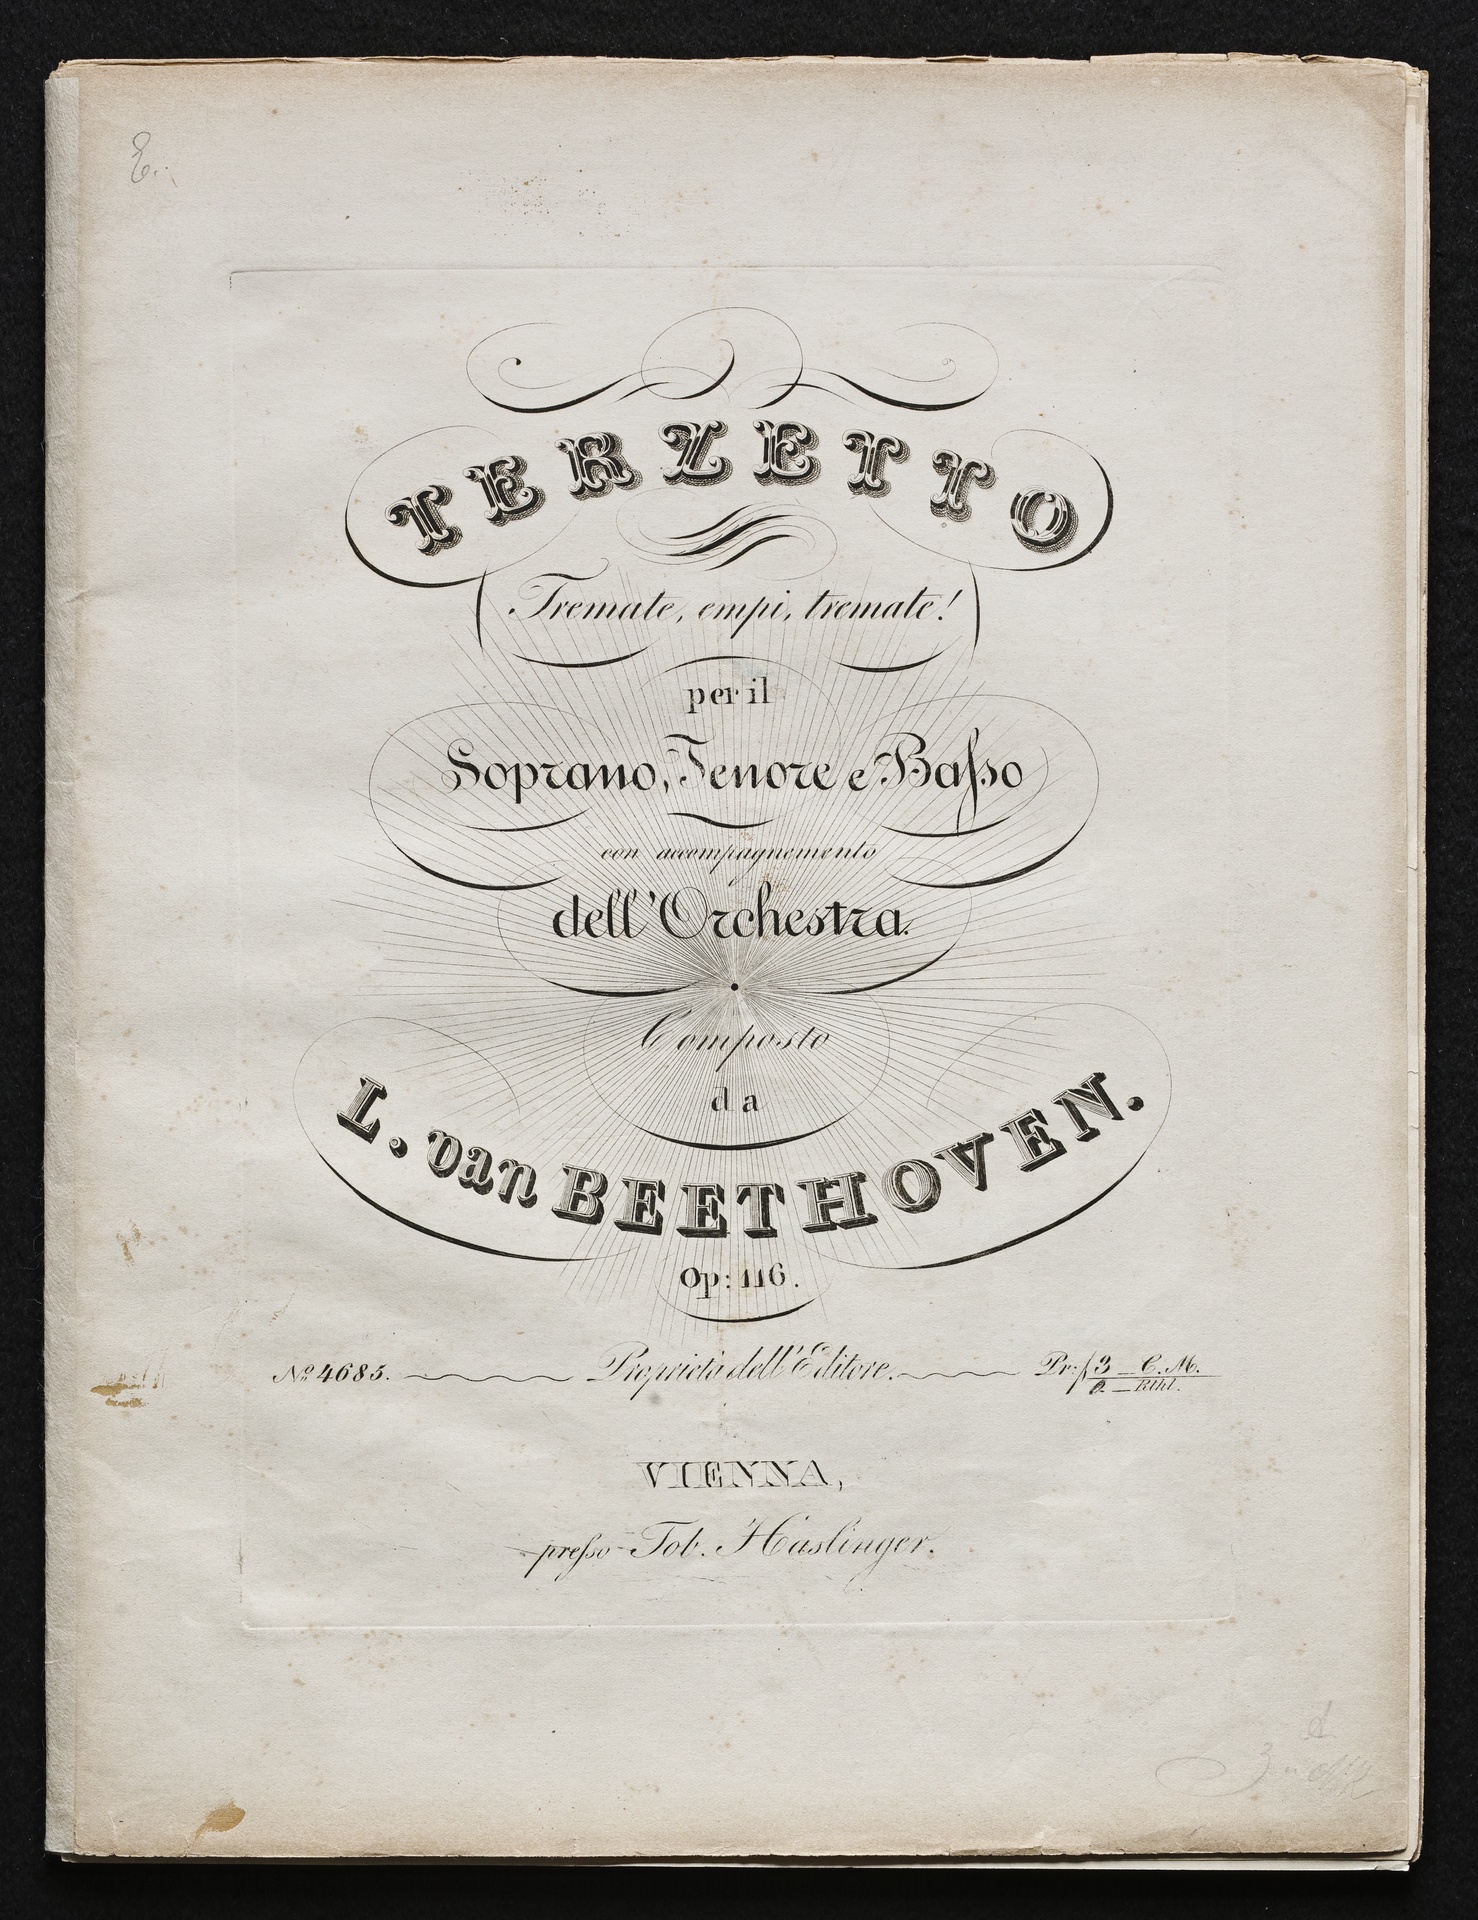 E.
TERZETTO
(Tremate, empi, tremate!)
per il
Soprano, Tenore e Baſso
con accompagnemento
dell'Orchestra.
Composto
da
L. van BEETHOVEN.
Op: 116.
No. 4685. Proprietà dell'Editore. Pr: f 3 _ C. M.
2 _ Rthl.
VIENNA,
preſso Tob. Haslinger.